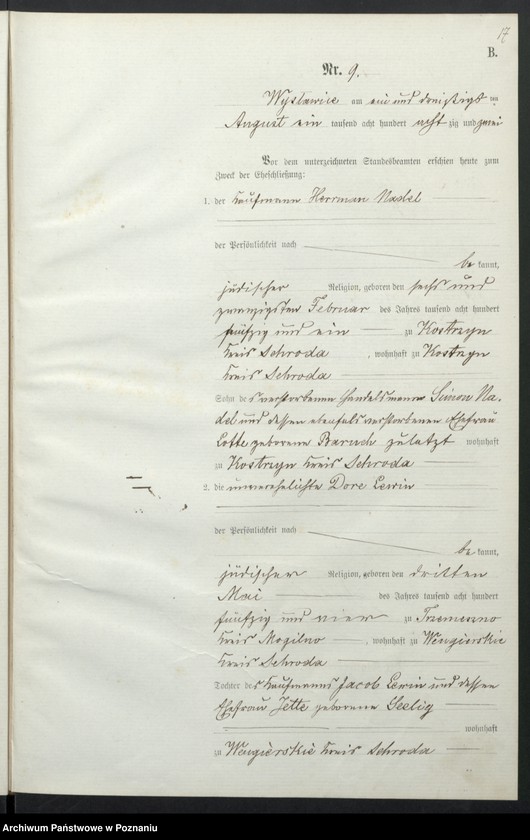 17
B.
Nr. 9.
Wyslawice am ein und dreißigst en
August ein tausend acht hundert acht zig und zwei
Vor dem unterzeichneten Standesbeamten erschien heute zum
Zweck der Eheschließung:
1. der Kaufmann Herrman Nadel
der Persönlichkeit nach
be kannt,
jüdischer Religion, geboren den sechs und
zwanzigsten Februar des Jahres tausend acht hundert
fünfzig und ein zu Kostrzyn
Kreis Schroda, wohnhaft zu Kostrzyn
Kreis Schroda
Sohn des verstorbenen Handelsmann Simon Na-
del und dessen ebenfals verstorbenen Ehefrau
Lotte geborene Baruch zuletzt wohnhaft
zu Kostrzyn Kreis Schroda
2. die unverehelichte Dore Lewin
der Persönlichkeit nach
be kannt,
jüdischer Religion, geboren den dritten
Mai des Jahres tausend acht hundert
fünfzig und vier zu Tremenno
Kreis Mogilno, wohnhaft zu Wengierskie
Kreis Schroda
Tochter des Kaufmanns Jacob Lewin und dessen
Ehefrau Jette geborene Seelig
wohnhaft
zu Wengierskie Kreis Schroda
Archiwum Państwowe w Poznaniu